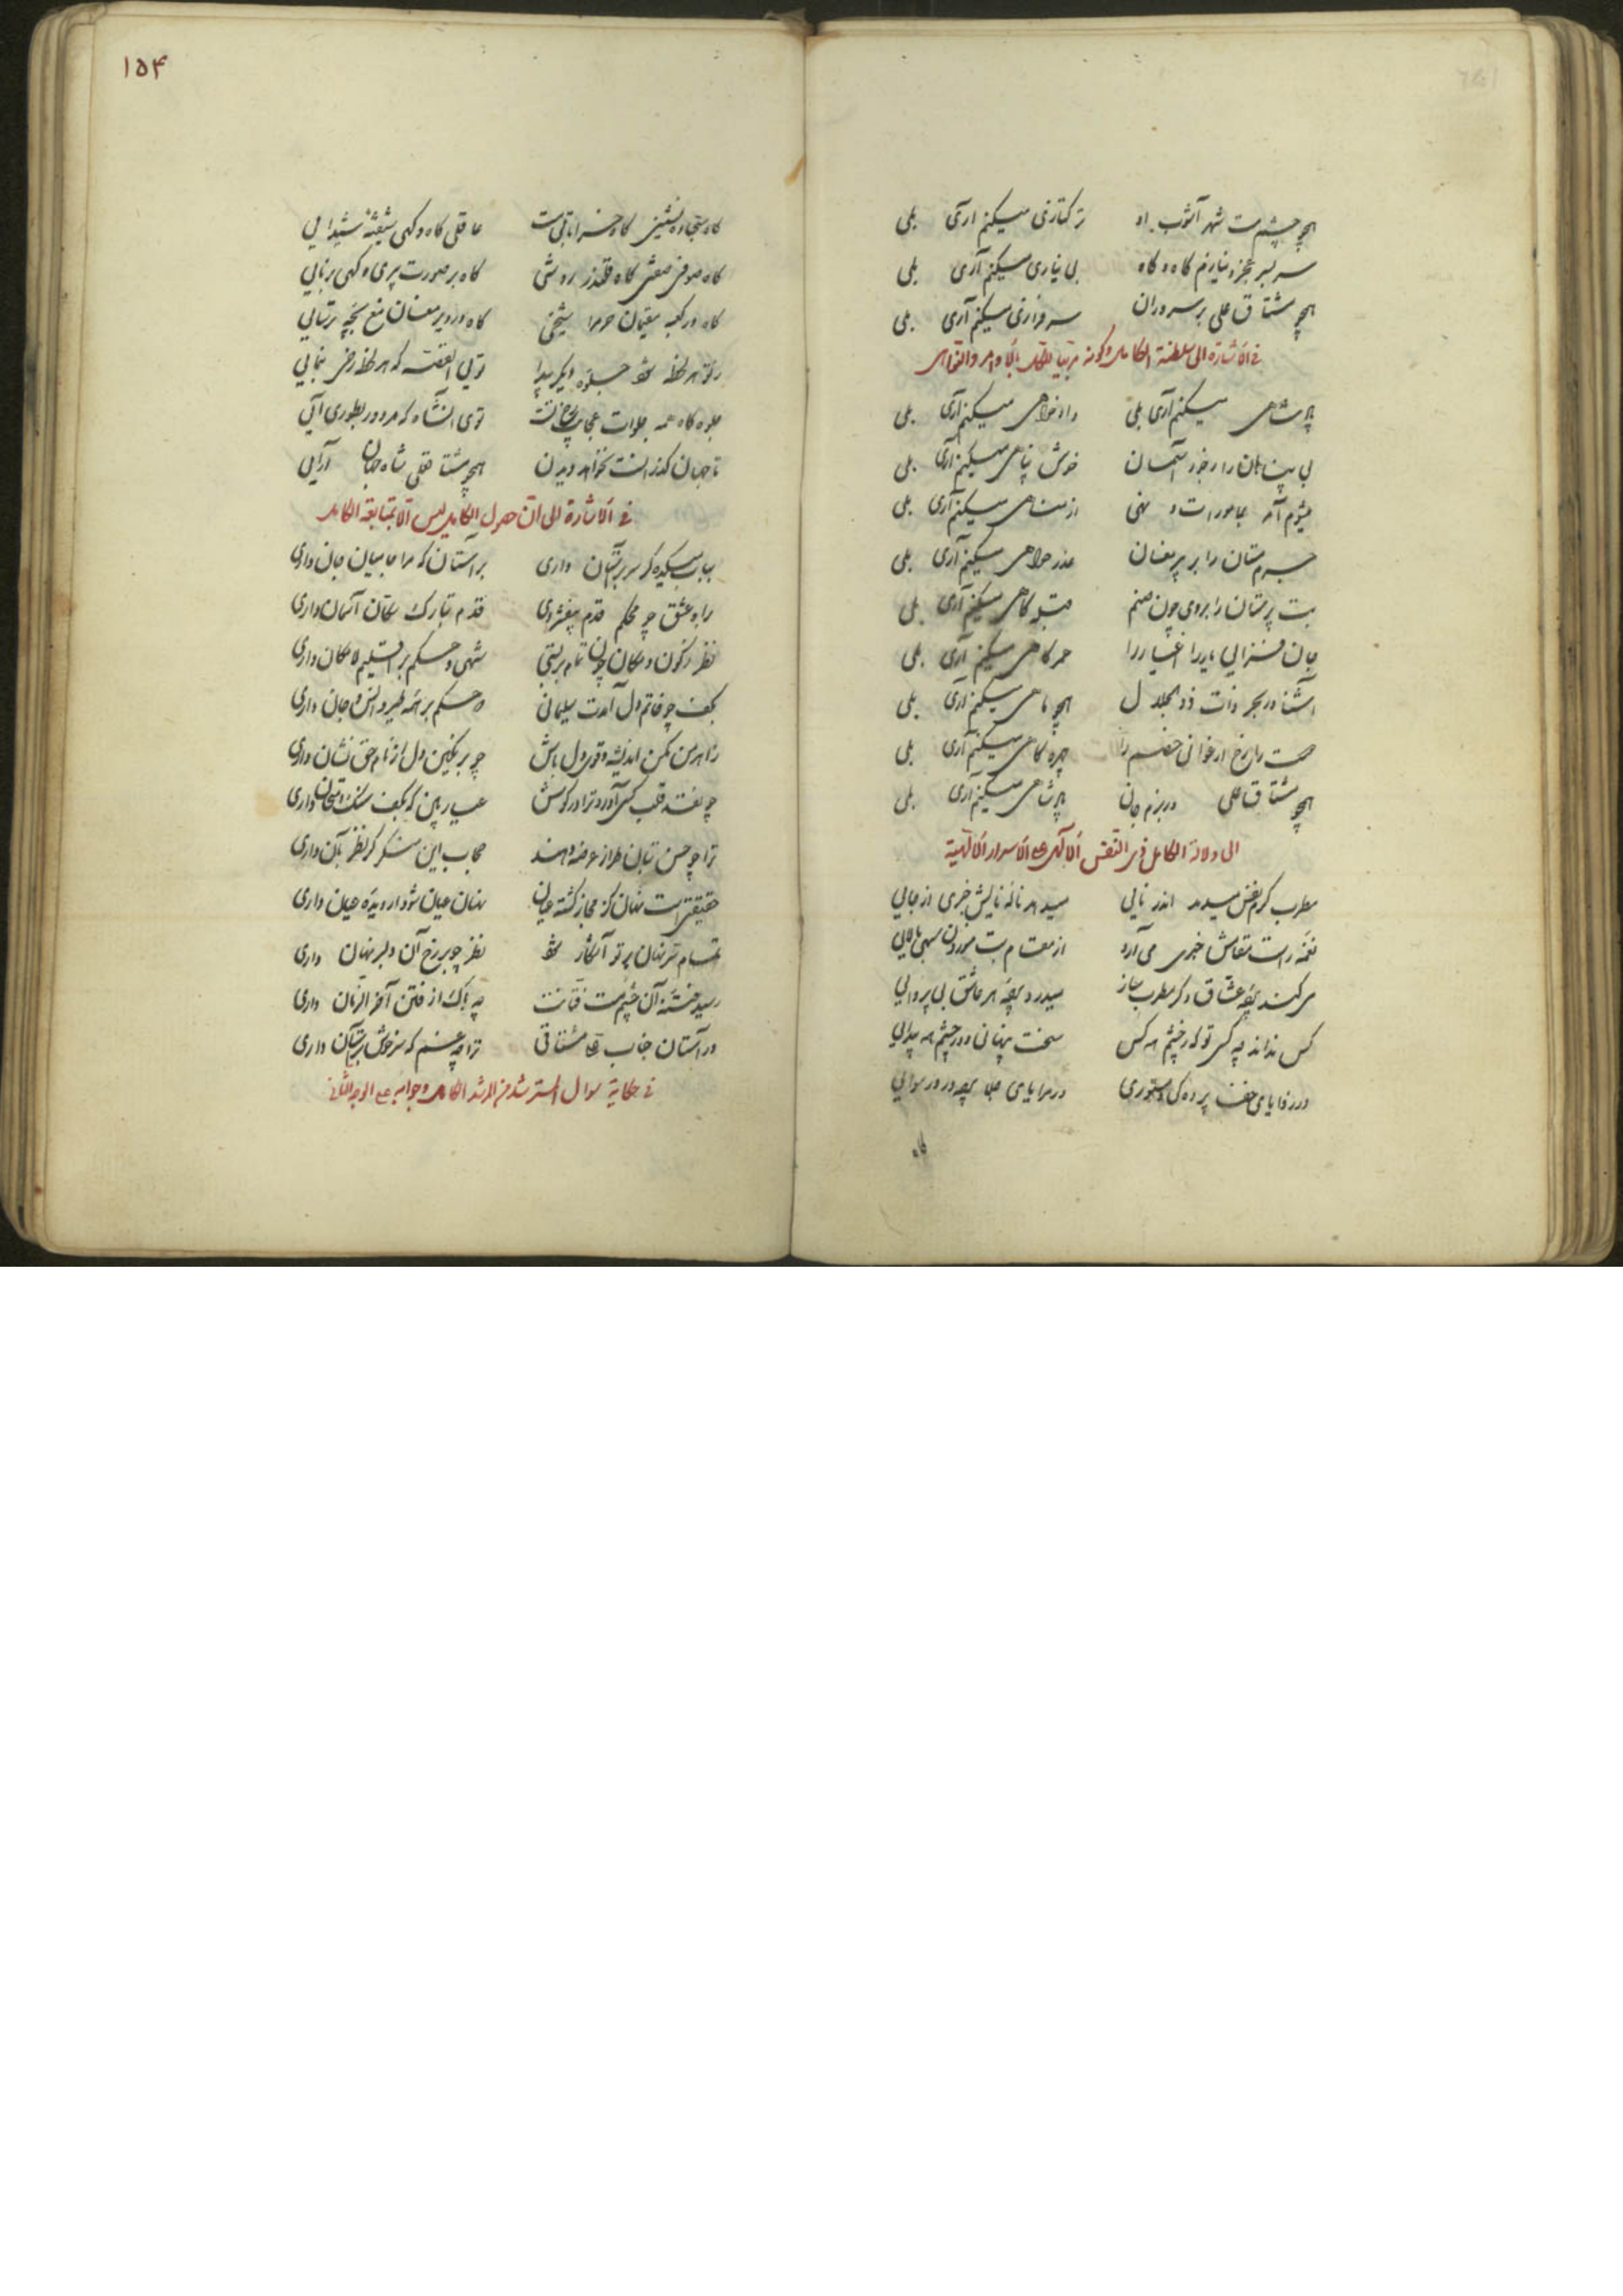 همچو چشم مست شهر آشوب او ترکتازی میکنم آری بلی
سر بسر عجز و نیازم گاه و گاه بی نیازی میکنم آری بلی
همچو مشتاق علی بر سروران سرفرازی میکنم آری بلی
فی الاشارة الی سلطنة الکامل و کونه مربیا للکل بالاوامر والنواهی
پادشاهی میکنم آری بلی دادخواهی میکنم آری بلی
بی پناهان را ز خورد آسمان خوش پناهی میکنم آری بلی
میشوم آمر بمامورات و نهی از مناهی میکنم آری بلی
جرم مستان را بر پیر مغان عذرخواهی میکنم آری بلی
بت پرستان را بروی چون صنم قبله گاهی میکنم آری بلی
جان فزایی یار را اغیار را عمرکاهی میکنم آری بلی
آشنا در بحر ذات ذوالجلال همچو ماهی میکنم آری بلی
صحت را رخ ارغوانی خصم را چهره کاهی میکنم آری بلی
همچو مشتاق علی در بزم جان پادشاهی میکنم آری بلی
الی دلالة الکامل ذی النفس الالهی علی الاسرار الالهیة
مطرب گرم نفس میدمد اندر نایی میدهد نالۀ نایش خبری از جایی
نغمه راست مقامش خبری می آرد از مقام بت موزون سهی بالایی
سر کند پرده عشاق دگر مطرب ساز میدرد پرده هر عاشق بی پروایی
کس نداند چه کسی تو که ز چشم همه کس سخت پنهانی و در چشم همه پیدایی
در زوایای خفا پرده کی و مستوری در مرایای جلا پرده در و رسوایی
گاه
۱۵۴
گاه سجاده نشینی گاه خراباتی مست عاقلی گاه و گهی شیفته شیدایی
گاه صوفی صفتی گاه قلندر روشی گاه بر صورت پیری و گهی برنایی
گاه در کعبه مقیمان حرم را شیخی گاه در دیر مغان مغ بچه ترسایی
ز تو هر لحظه شود جلوه دیگر پیدا تویی آنفتنه که هر لحظه رخی بنمایی
جلوه گاه همه جلوات عجایب رخ تست توی آنشاه که هر دور بطوری آیی
تا جهان گذرانست نخواهد دیدن همچو مشتاق علی شاه جهان آرایی
فی الاشارة الی ان حصول الکامل لیس الا بمتابعة الکامل
بباب میکده گر سر بر آستان داری بر آستان که مرا جا میان جان داری
براه عشق چو محکم قدم بیفشردی قدم بتارک سکان آسمان داری
نظر ز کون و مکان چون تمام بربستی شهی و حکم بر اقلیم لامکان داری
بکف چو خاتم دل آمدت سلیمانی و حکم بر همه طیر و انس و جان داری
ز اهرمن مکن اندیشه و قوی دل باش چو بر نگین دل از نام حق نشان داری
چو نقد قلب کسی آورد ترا در گوش عیار بین که بکف سنگ امتحان داری
ترا چو حسن بتان طراز عرضه دهند حجاب این منگر گر نظر بآن داری
حقیقتی است نهان کز مجاز گشته عیان نهان عیان شود ار دیدۀ عیان داری
تمام سر نهان بر تو آشکار شود نظر چو بر رخ آن دلبر نهان داری
رسید فتنۀ آن چشم مست فتانت چه باک از فتن آخر الزمان داری
در آستان جناب علی مشتاقی ترا چه غم که سر خوش بر آستان داری
فی حکایة سوال المسترشد من المرشد الکامل و جوابه علی الوجه الثانی